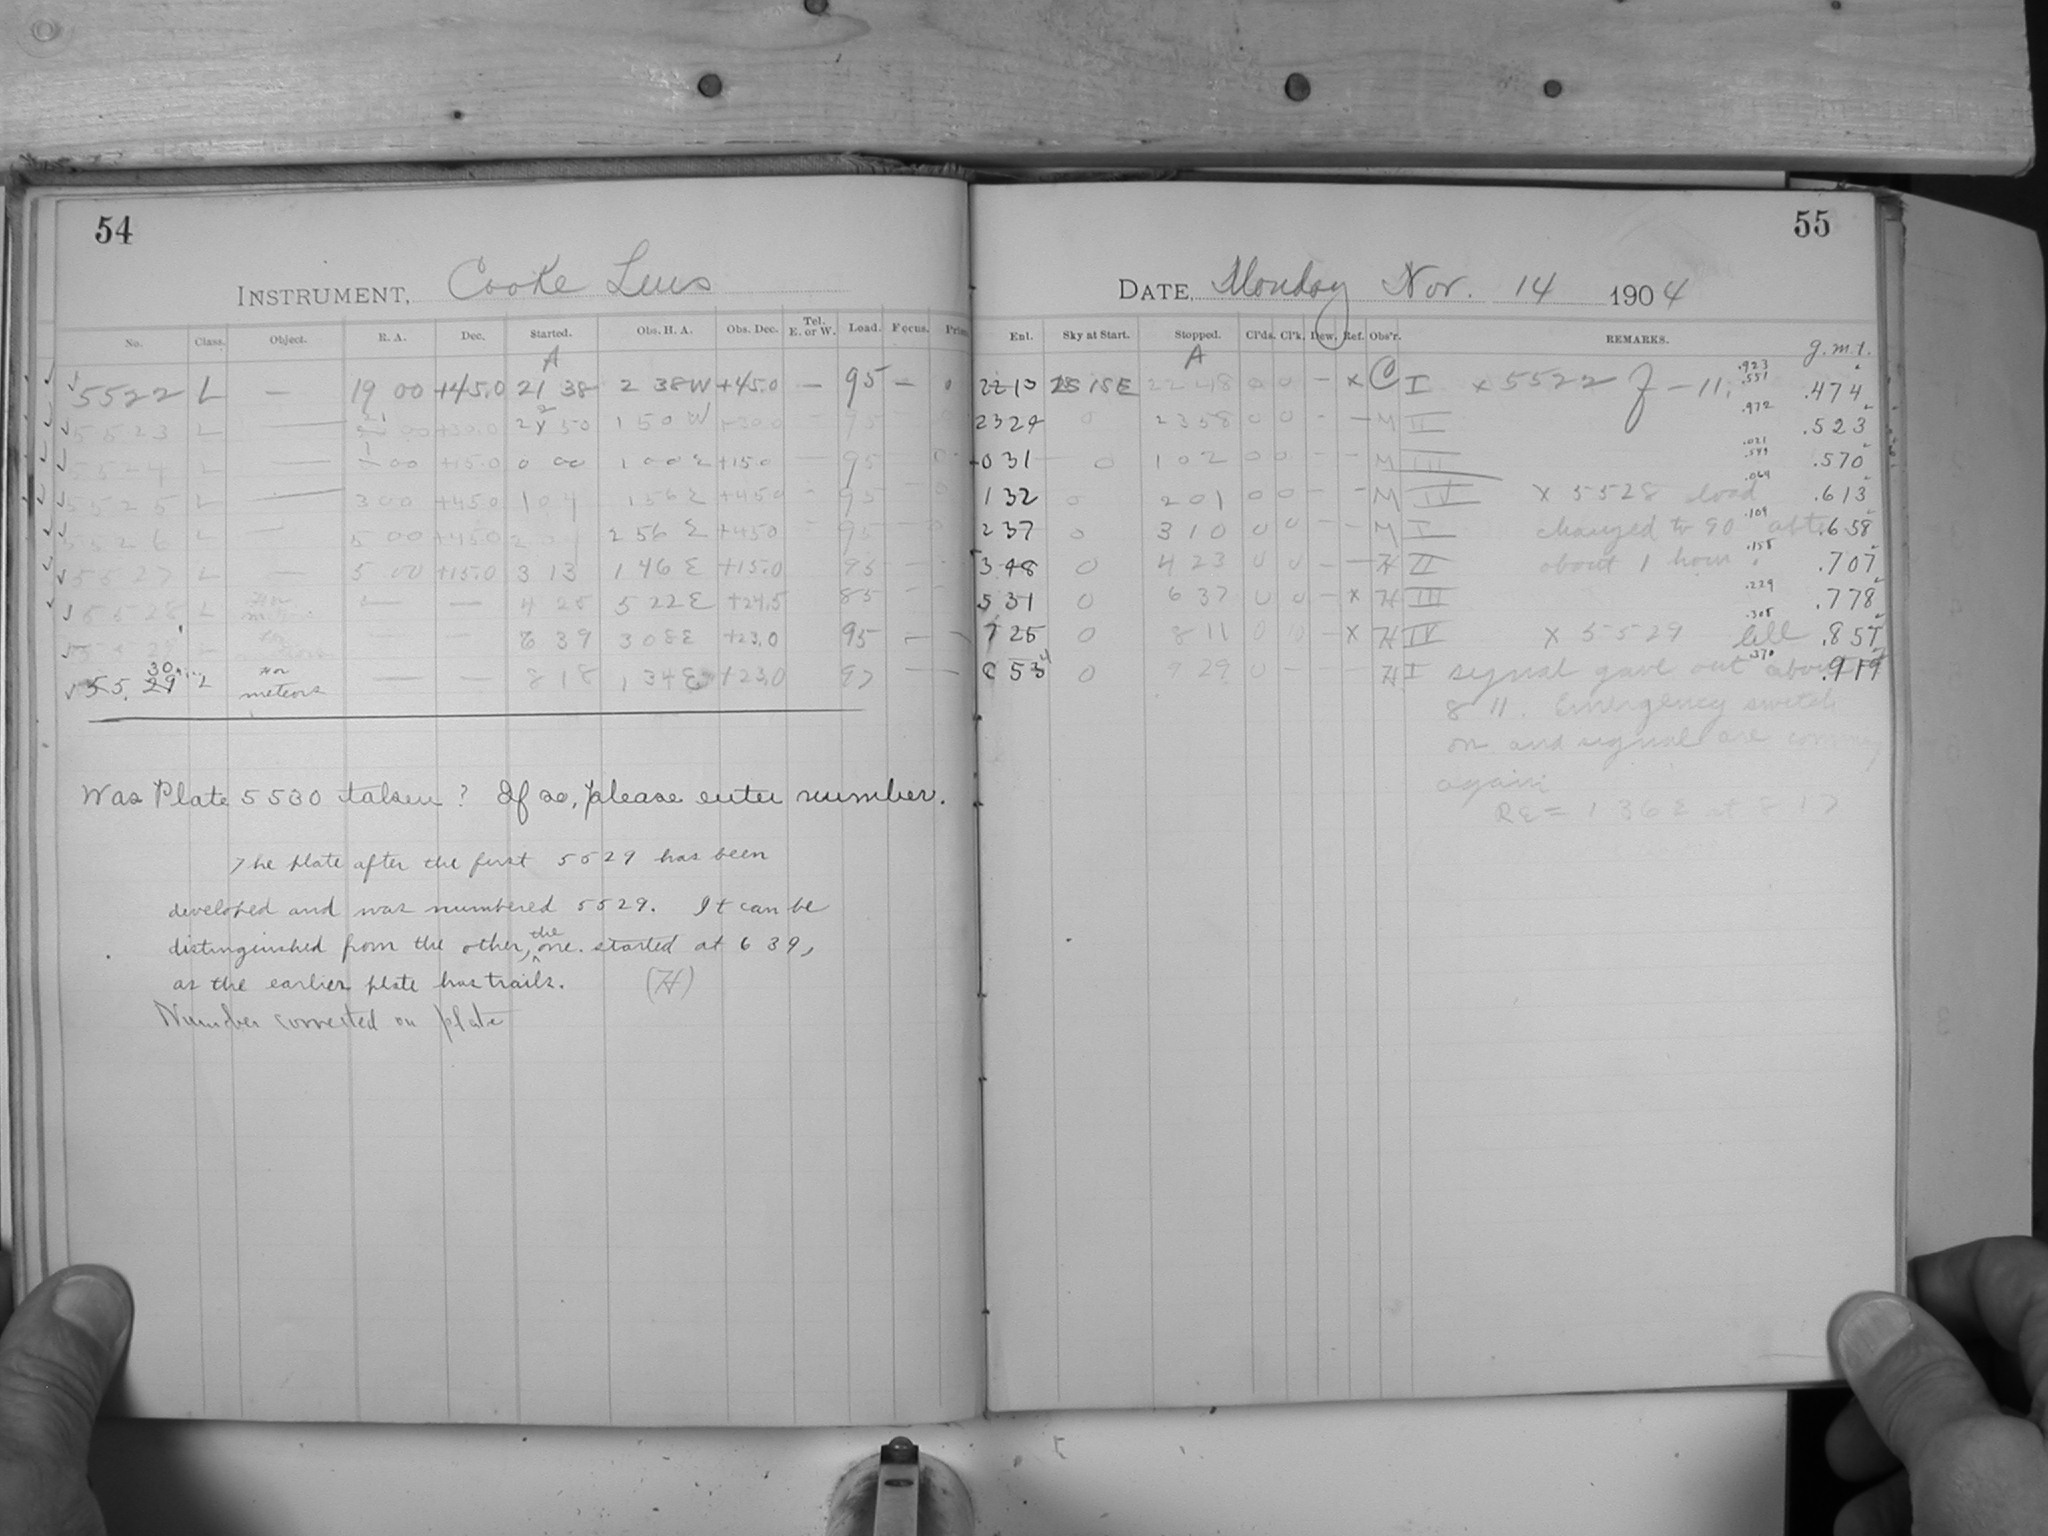 54
INSTRUMENT, Cooke Lens
No. Class. Object. R. A. Dec. Started. Obs. H. A. Obs. Dec. Tel. E. or W. Load. Focus. Prism
A
5522 L — 19 00 +45.0 21 38 2 38W +45.0 — 95 — 0
5523 L — 00 +30.0 50 1 50 W +30.0 — 95
5524 L — 1 00 +15.0 0 00 1 00 E +15.0 — 95
5525 L — 3 00 +45.0 1 04 1 56 E +45.0 — 95
5526 L — 5 00 +45.0 2 56 E +45.0 — 95
5527 L — 5 00 +15.0 3 13 1 46 E +15.0 95
5528 L for — — 4 25 5 22 E +24.5 85
for — — 6 39 3 08 E +23.0 95 — —
30
55 29 L for meteors — — 8 18 1 34 E +23.0 97 — —
Was Plate 5530 taken? If so, please enter number.
The plate after the first 5529 has been
developed and was numbered 5529. It can be
distinguished from the other, the one started at 6 39,
as the earlier plate has trails. (H)
Number corrected on plate
55
DATE, Monday Nov. 14 1904
Enl. Sky at Start. Stopped. Cl'ds. Cl'k. Dew. Ref. Obs'r. REMARKS. g.m.t.
A
22 13 15 E 22 48 0 0 — x C I x 5522 f — 11. .923 .551 .474
23 24 0 23 58 0 0 — — M II .972 .523
0 31 0 1 02 0 0 — — M III .021 .570
1 32 0 2 01 0 0 — — M IV x 5528 load .064 .613
2 37 0 3 10 0 0 — — M I changed to 90 .109 .658
3 48 0 4 23 0 0 — — H II about 1 hour. .158 .707
5 31 0 6 37 0 0 — x H III .229 .778
7 25 0 8 11 0 0 — x H IV x 5529 bell .308 .857
8 53 0 9 29 0 — — — H I signal gave out about .370 .919
8 11. Emergency switch
on and signal are coming
again
RE = 1 36 E at 8 17